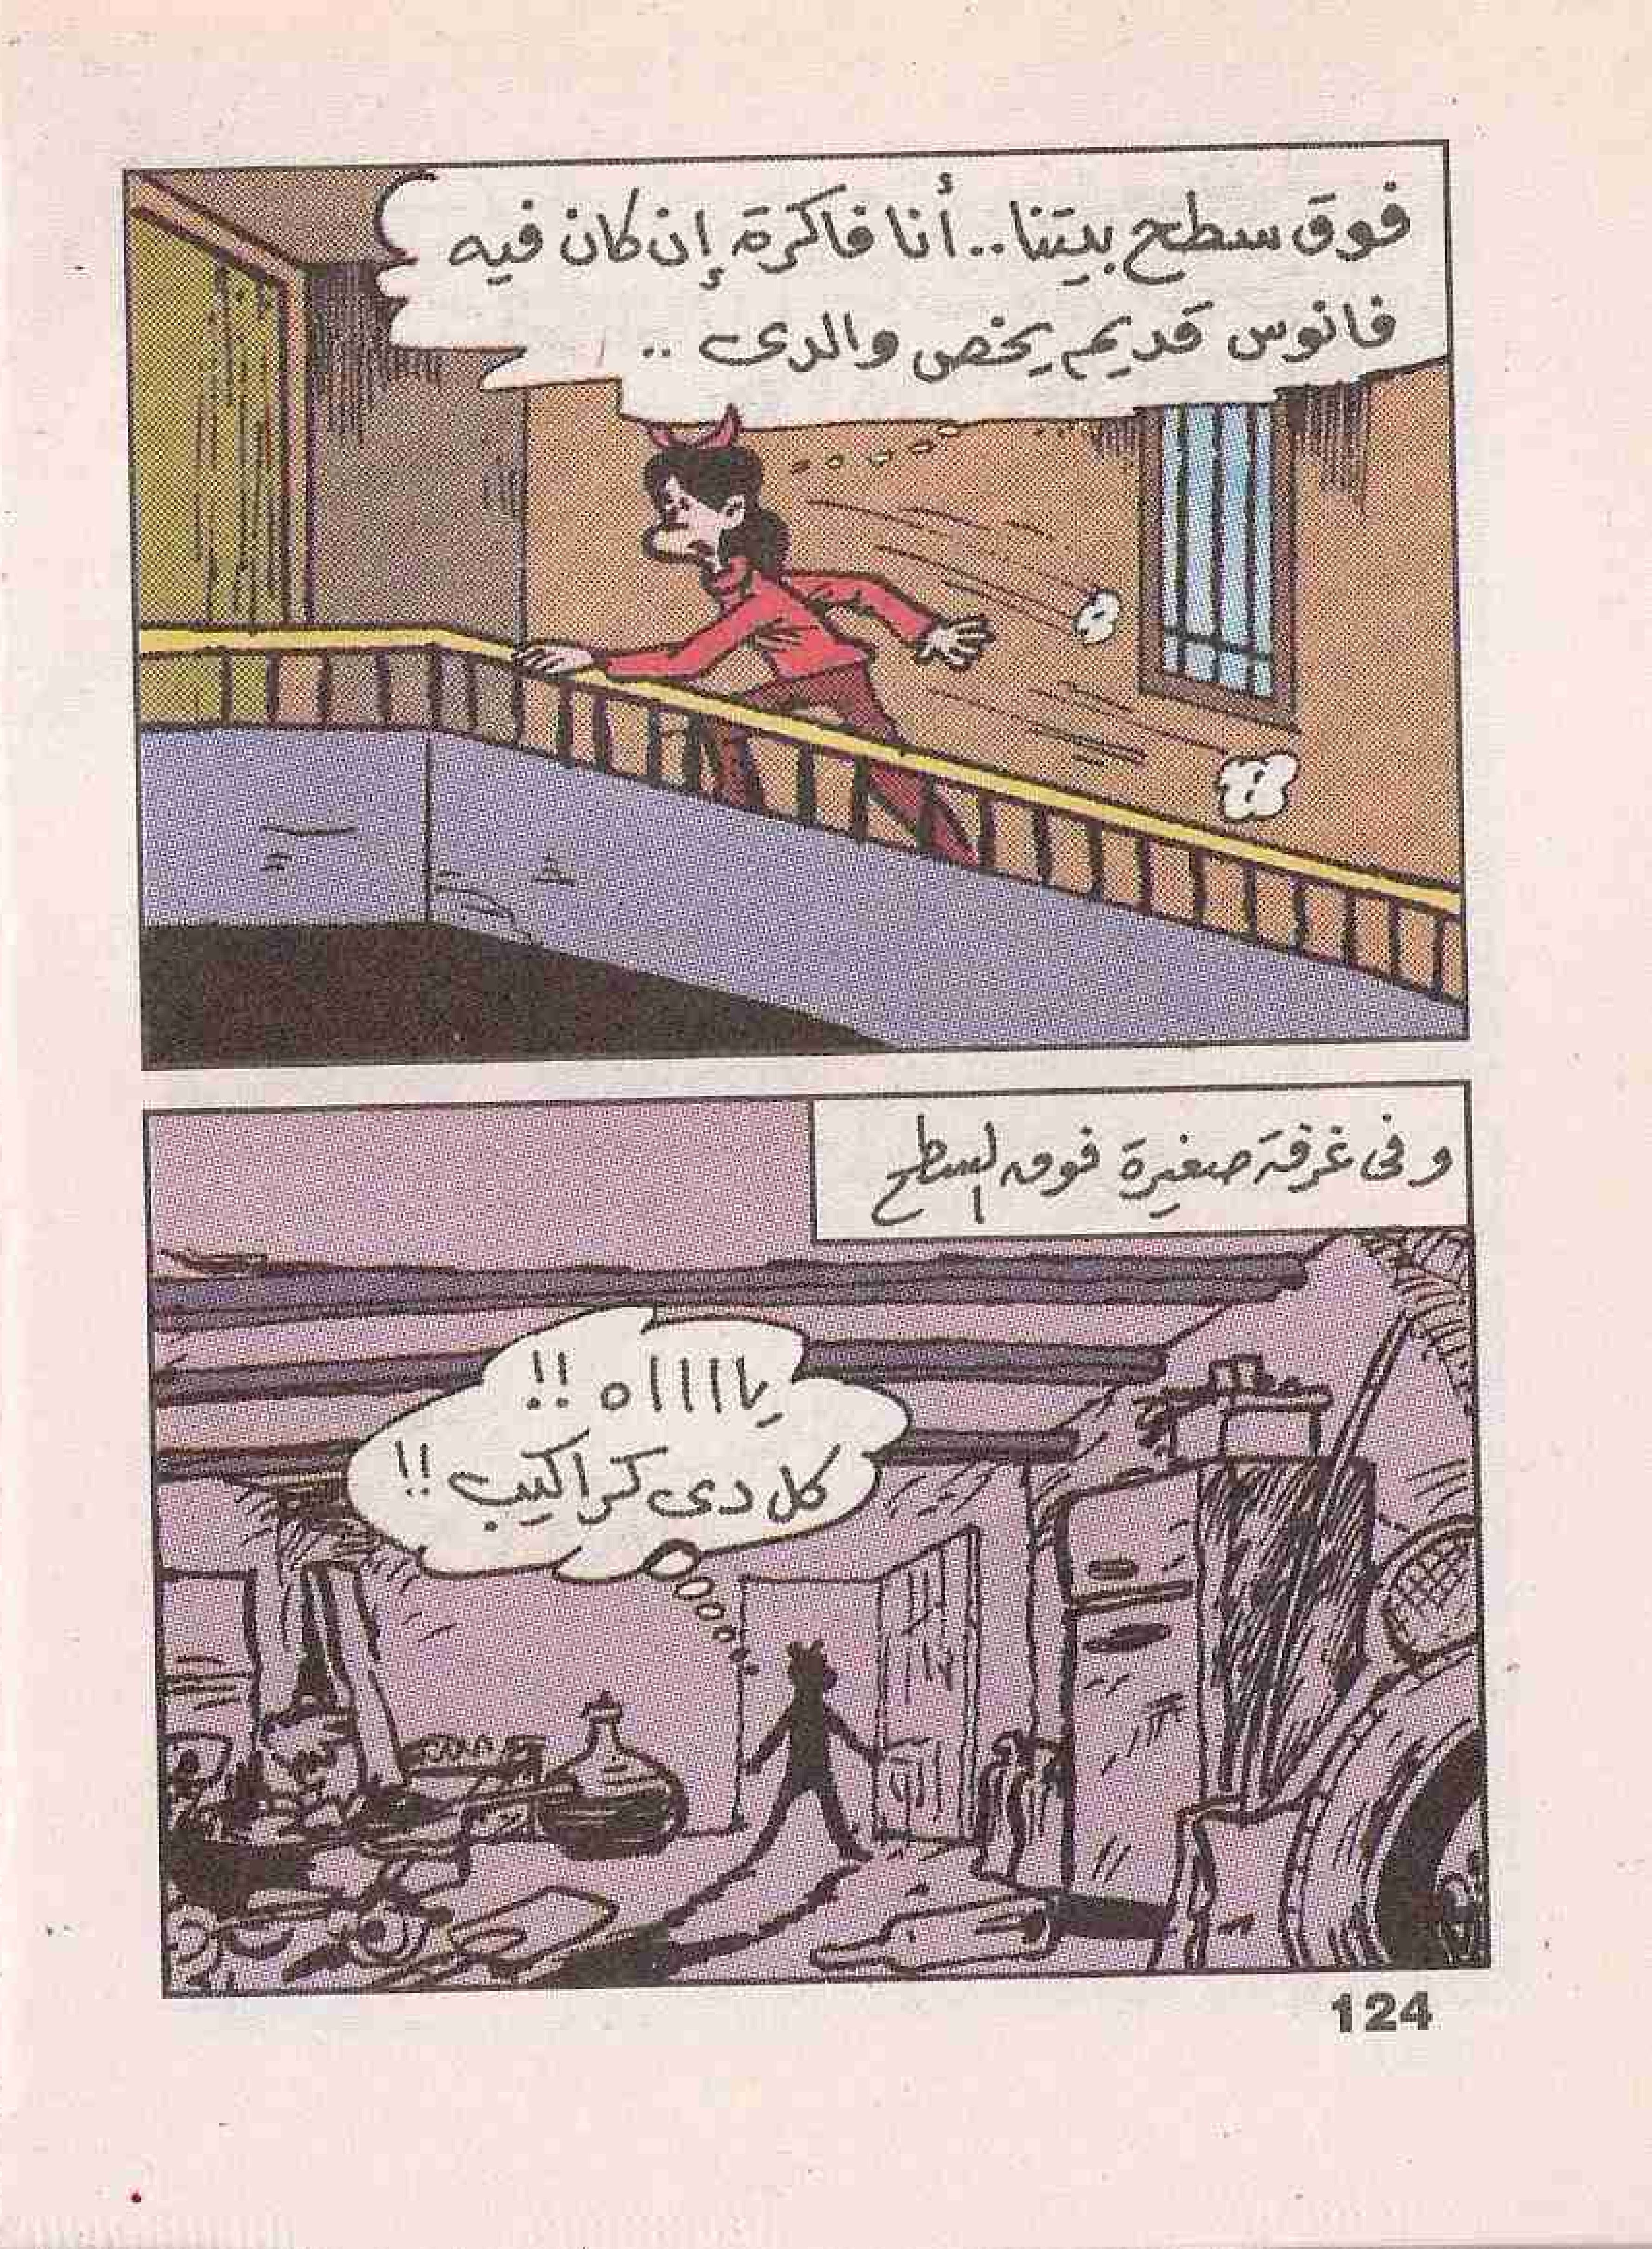 فوق سطح بيتنا.. أنا فاكرة إن كان فيه
فانوس قديم يخص والدى ..
وفى غرفة صغيرة فوق السطح
يااااه !!
كل دى كراكيب !!
124